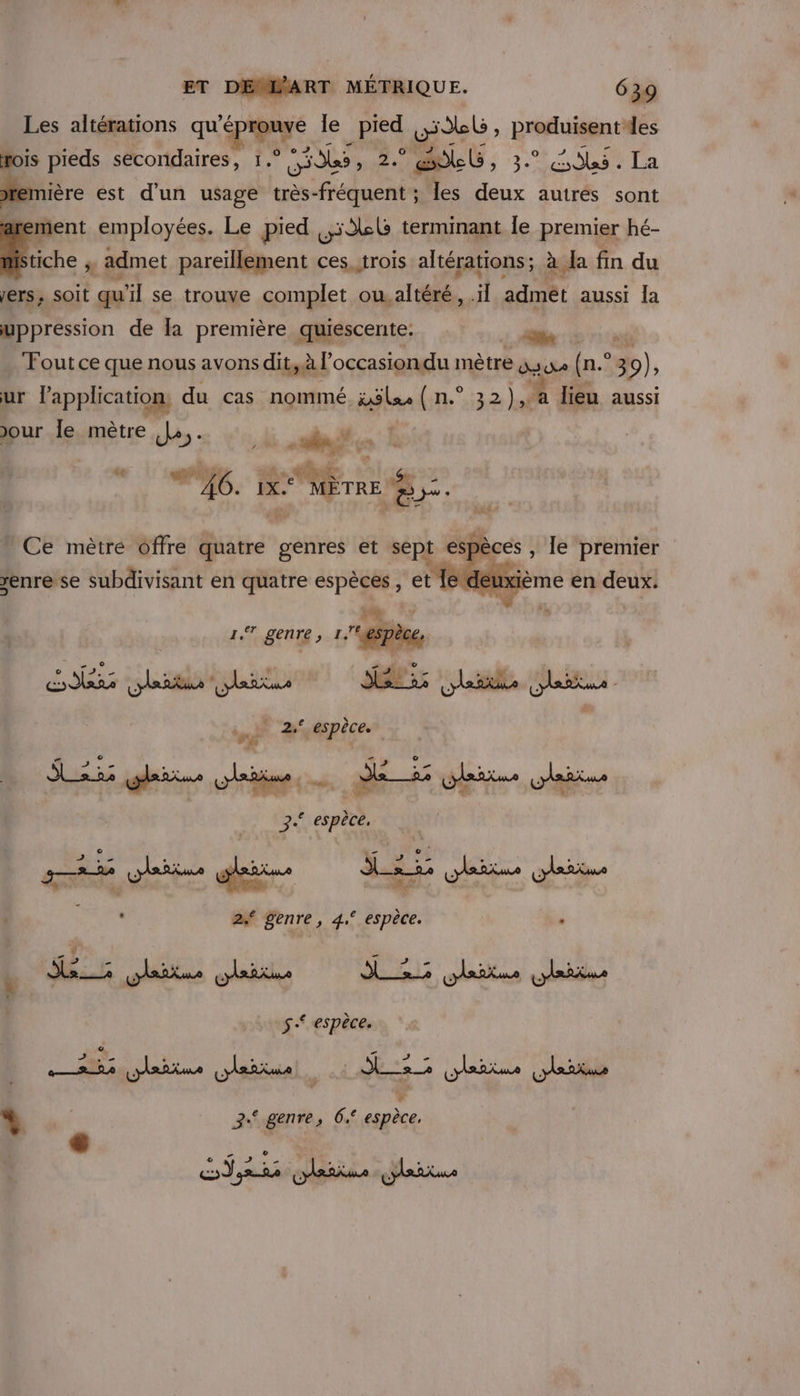 ET DE L'ART MÉTRIQUE. 639
Les altérations qu'éprouve le pied فاعلاتن, produisent les
trois pieds secondaires, 1.° فعلاتن, 2.° فاعلات, 3.° فعلات. La
première est d'un usage très-fréquent ; les deux autres sont
rarement employées. Le pied فاعلاتن terminant le premier hé-
mistiche, admet pareillement ces trois altérations; à la fin du
vers, soit qu'il se trouve complet ou altéré, il admet aussi la
suppression de la première quiescente.
Tout ce que nous avons dit, à l'occasion du mètre مديد (n.° 39),
sur l'application du cas nommé معاقبة (n.° 32), a lieu aussi
pour le mètre رمل.
46. IX.e MÈTRE سريع.
Ce mètre offre quatre genres et sept espèces, le premier
genre se subdivisant en quatre espèces, et le deuxième en deux.
1.er genre, 1.re espèce.
مستفعلن مستفعلن مفعلا مستفعلن مستفعلن مفعلات
2.e espèce.
مستفعلن مستفعلن مفعلا مستفعلن مستفعلن مفعلا
3.e espèce.
مستفعلن مستفعلن مفعلا مستفعلن مستفعلن مفعو
2.e genre, 4.e espèce.
مستفعلن مستفعلن معلا مستفعلن مستفعلن معلا
5.e espèce.
مستفعلن مستفعلن معلا مستفعلن مستفعلن
3.e genre, 6.e espèce.
مستفعلن مستفعلن مفعولات